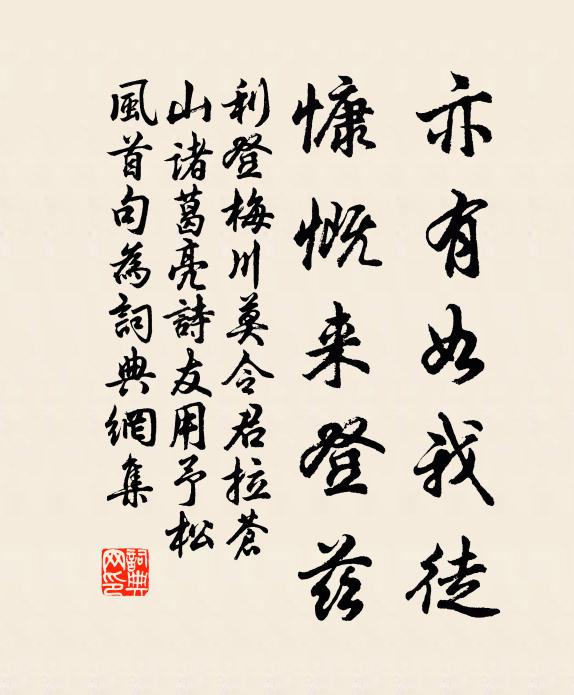 亦有如我徒
慷慨来登茲
利登梅川莫令君拉蒼
山諸葛亮詩友用予松
風首句為詞典網集
詞典网印